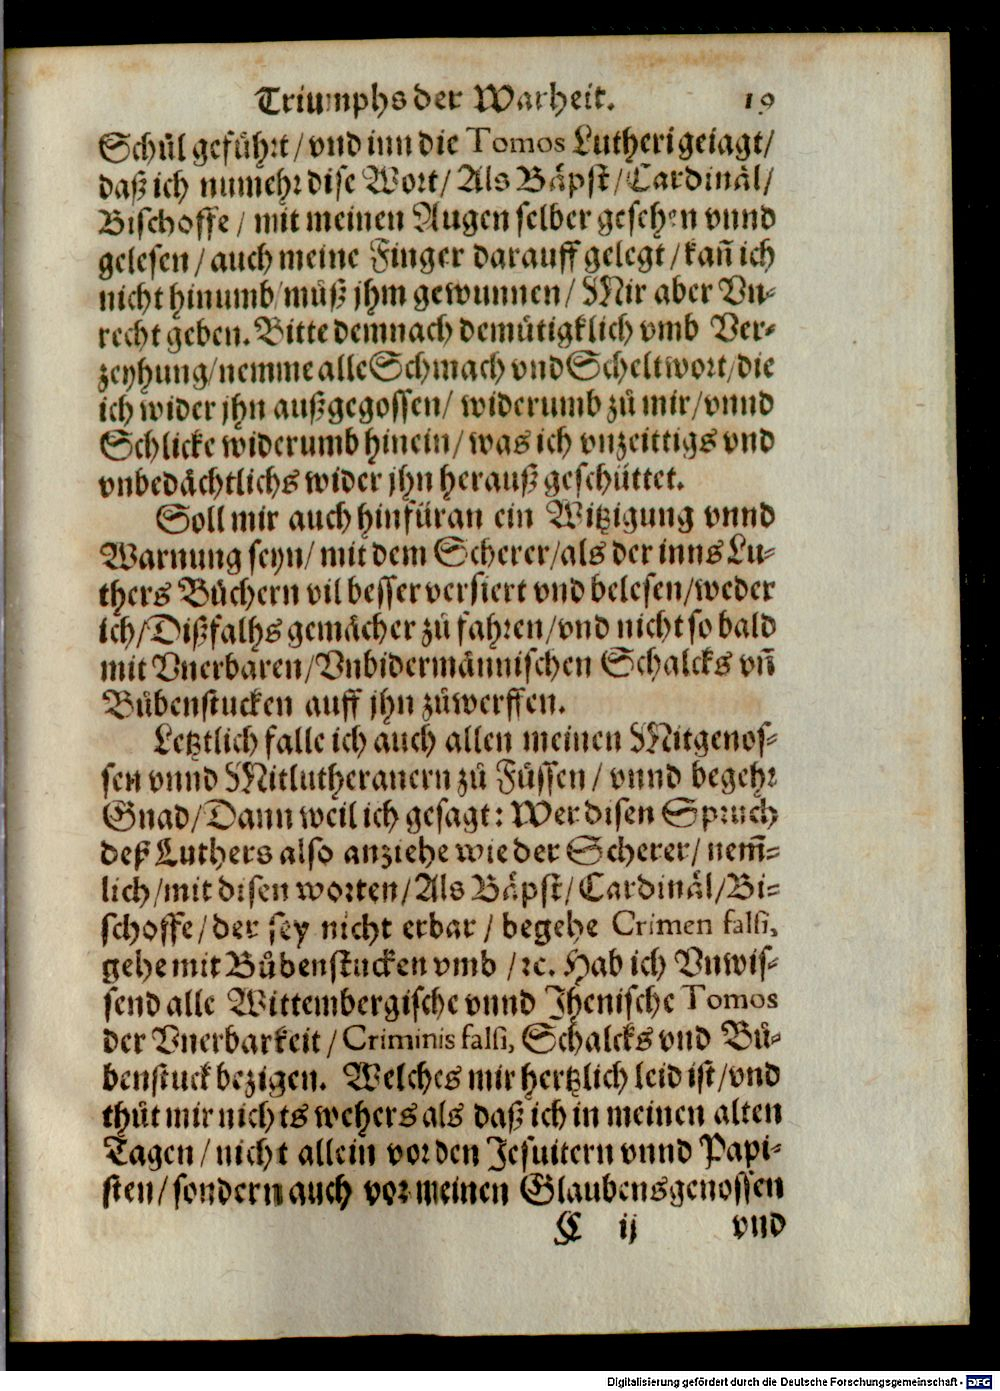 Triumphs der Warheit. 19
Schůl geführt/ vnd inn die Tomos Lutheri geiagt/
daß ich numehr dise Wort/ Als Bäpst/ Cardinäl/
Bischoffe/ mit meinen Augen selber gesehen vnnd
gelesen/ auch meine Finger darauff gelegt/ kañ ich
nicht hinumb/ můß jhm gewunnen/ Mir aber Vn-
recht geben. Bitte demnach demütigklich vmb Ver-
zeyhung/ nemme alle Schmach vnd Scheltwort/ die
ich wider jhn außgegossen/ widerumb zů mir/ vnnd
Schlicke widerumb hinein/ was ich vnzeittigs vnd
vnbedächtlichs wider jhn herauß geschüttet.
Soll mir auch hinfüran ein Witzigung vnnd
Warnung seyn/ mit dem Scherer/ als der inns Lu-
thers Büchern vil besser versiert vnd belesen/ weder
ich/ Dißfalhs gemächer zů fahren/ vnd nicht so bald
mit Vnerbaren/ Vnbidermännischen Schalcks vñ
Bůbenstucken auff jhn zůwerffen.
Letztlich falle ich auch allen meinen Mitgenos-
sen vnnd Mitlutheranern zů Füssen/ vnnd begehr
Gnad/ Dann weil ich gesagt: Wer disen Spruch
deß Luthers also anziehe wie der Scherer/ nem̃-
lich/ mit disen worten/ Als Bäpst/ Cardinäl/ Bi-
schoffe/ der sey nicht erbar/ begehe Crimen falsi,
gehe mit Bůbenstucken vmb/ ꝛc. Hab ich Vnwis-
send alle Wittembergische vnnd Jhenische Tomos
der Vnerbarkeit/ Criminis falsi, Schalcks vnd Bů-
benstuck bezigen. Welches mir hertzlich leid ist/ vnd
thůt mir nichts wehers als daß ich in meinen alten
Tagen/ nicht allein vor den Jesuitern vnnd Papi-
sten/ sondern auch vor meinen Glaubensgenossen
C ij vnd
Digitalisierung gefördert durch die Deutsche Forschungsgemeinschaft - DFG